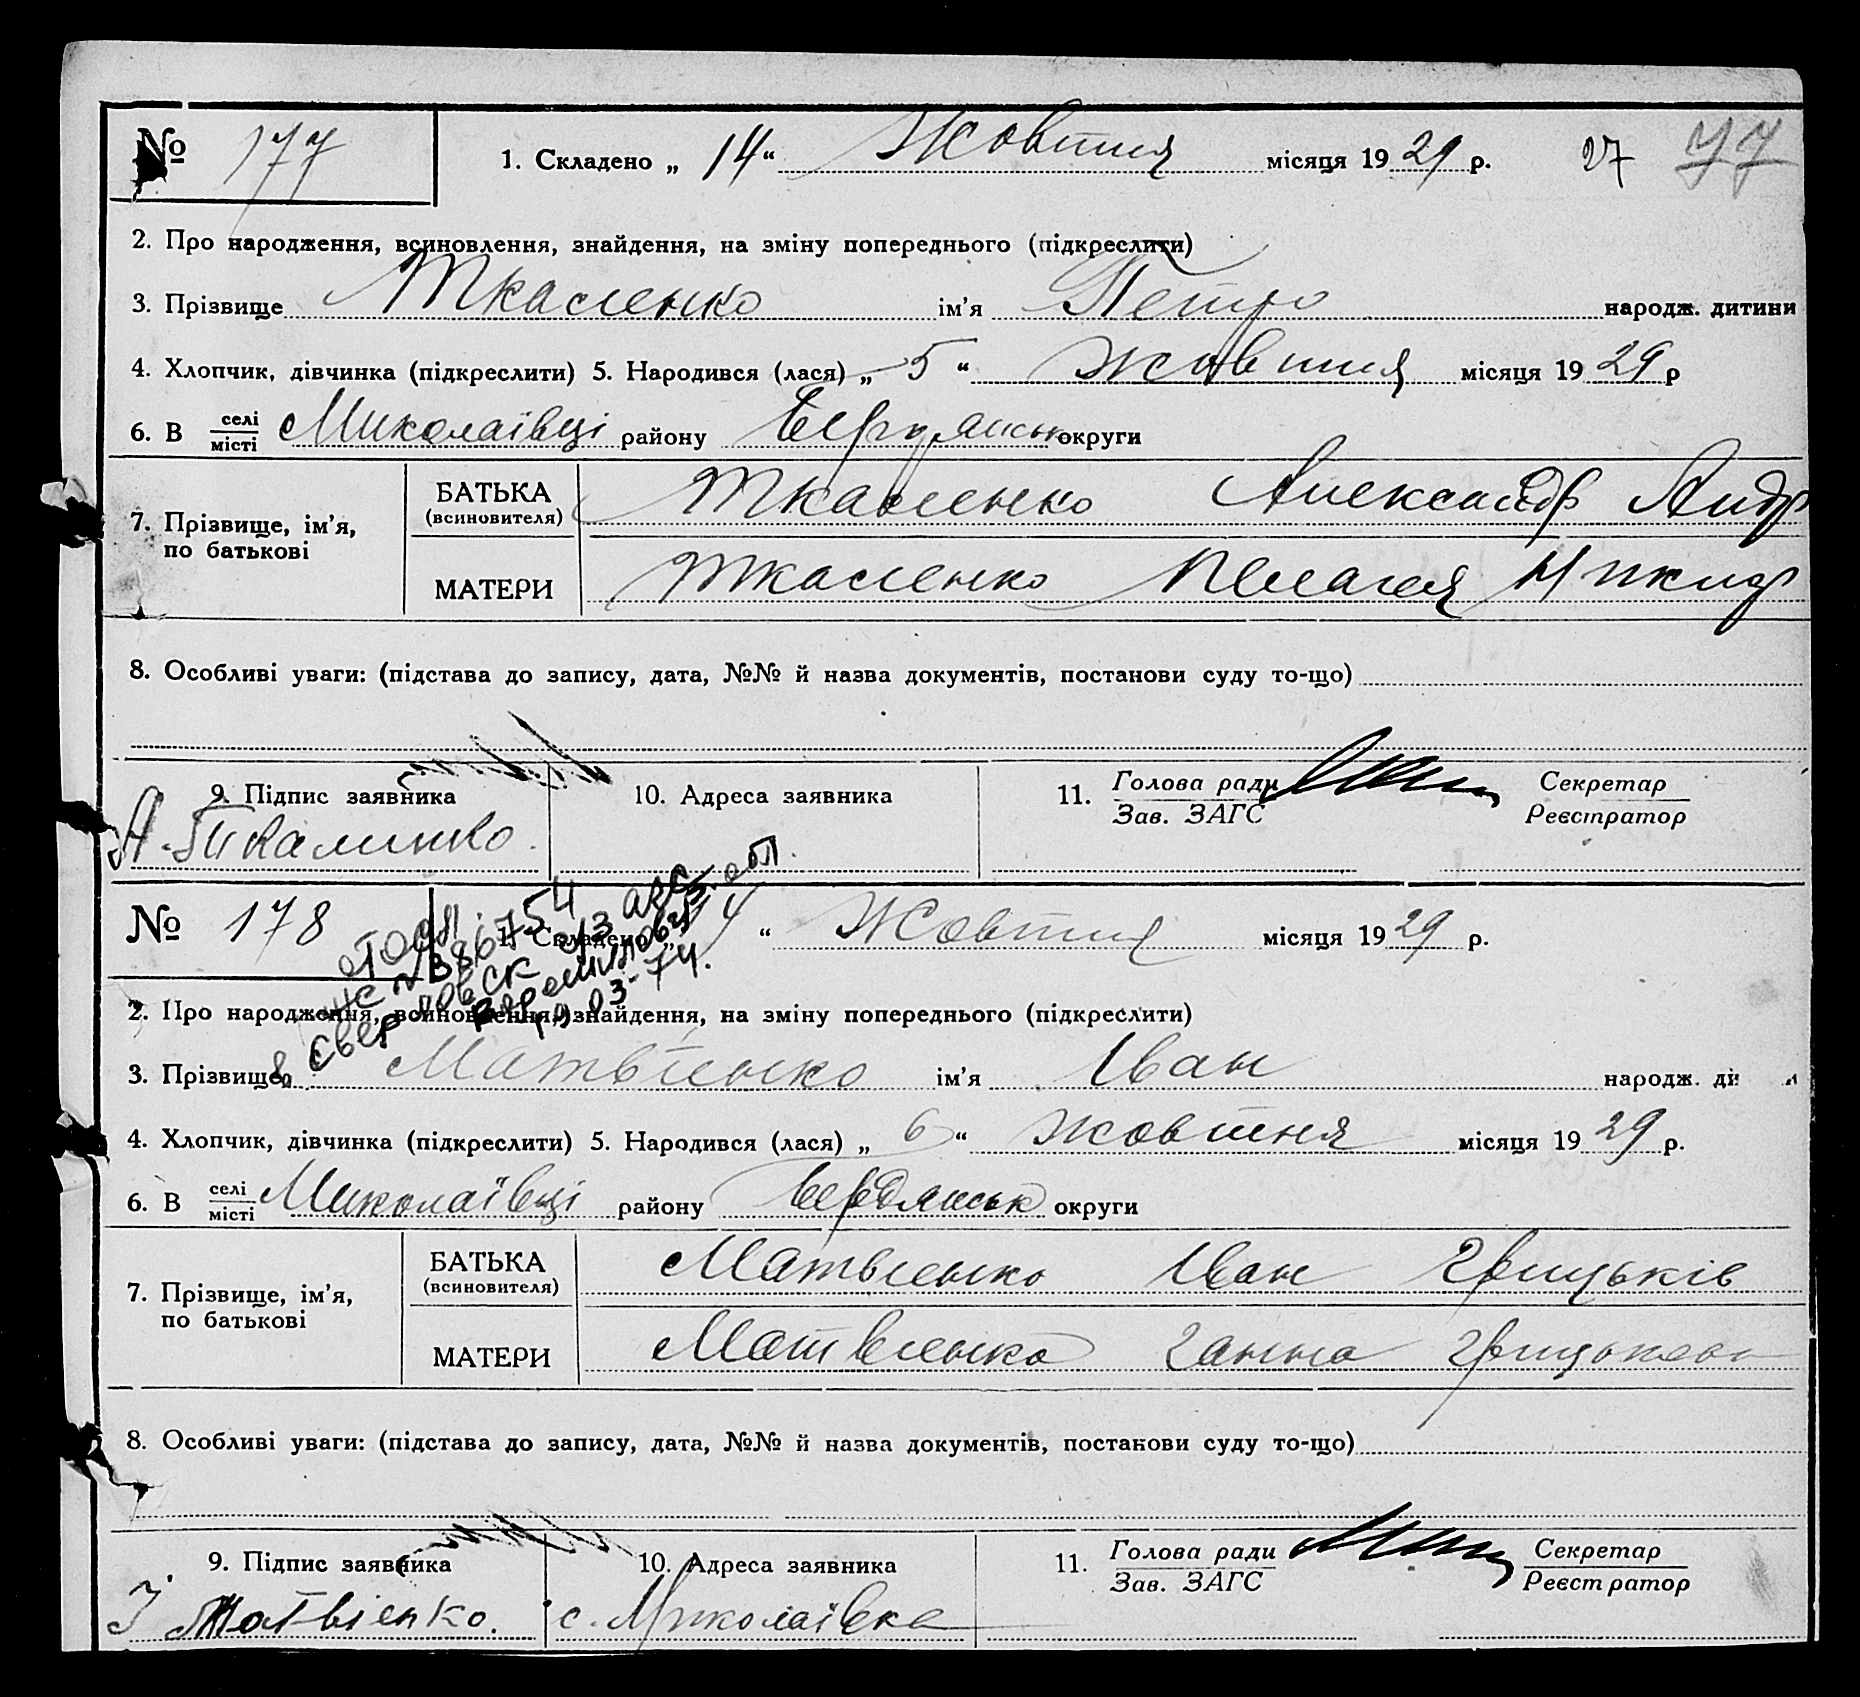 № 177 1. Складено „ 14 “ Жовтня місяця 19 29 р. 27 77
2. Про народження, всиновлення, знайдення, на зміну попереднього (підкреслити)
3. Прізвище Ткаленко ім’я Петро народж. дитини
4. Хлопчик, дівчинка (підкреслити) 5. Народився (лася) „ 5 “ жовтня місяця 19 29 р
6. В селі місті Миколаївці району Бердянськ округи
7. Прізвище, ім’я, по батькові
БАТЬКА (всиновителя) Ткаленко Александр Андр
МАТЕРИ Ткаленко Пелагея Никиф
8. Особливі уваги: (підстава до запису, дата, №№ й назва документів, постанови суду то-що)
9. Підпис заявника 10. Адреса заявника 11. Голова ради Зав. ЗАГС Секретар Реєстратор
А. Ткалинко.
№ 178 1. Складено „ 14 “ Жовтня місяця 19 29 р.
2. Про народження, всиновлення, знайдення, на зміну попереднього (підкреслити)
3. Прізвище Матвієнко ім’я Іван народж. ди
4. Хлопчик, дівчинка (підкреслити) 5. Народився (лася) „ 6 “ жовтня місяця 19 29 р.
6. В селі місті Миколаївці району Бердянськ округи
7. Прізвище, ім’я, по батькові
БАТЬКА (всиновителя) Матвіенко Іван Грицьків
МАТЕРИ Матвіенко Ганна
8. Особливі уваги: (підстава до запису, дата, №№ й назва документів, постанови суду то-що)
9. Підпис заявника 10. Адреса заявника 11. Голова ради Зав. ЗАГС Секретар Реєстратор
І Матвіенко. с. Миколаївка